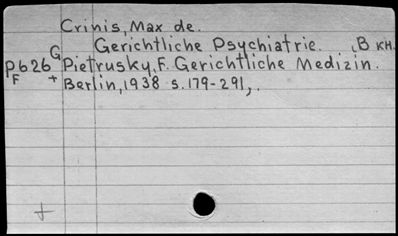 Crinis, Max de.
Gerichtliche Psychiatrie. , B KH.
P626 G Pietrusky, F. Gerichtliche Medizin.
F + Berlin, 1938 s. 179-291,.
+